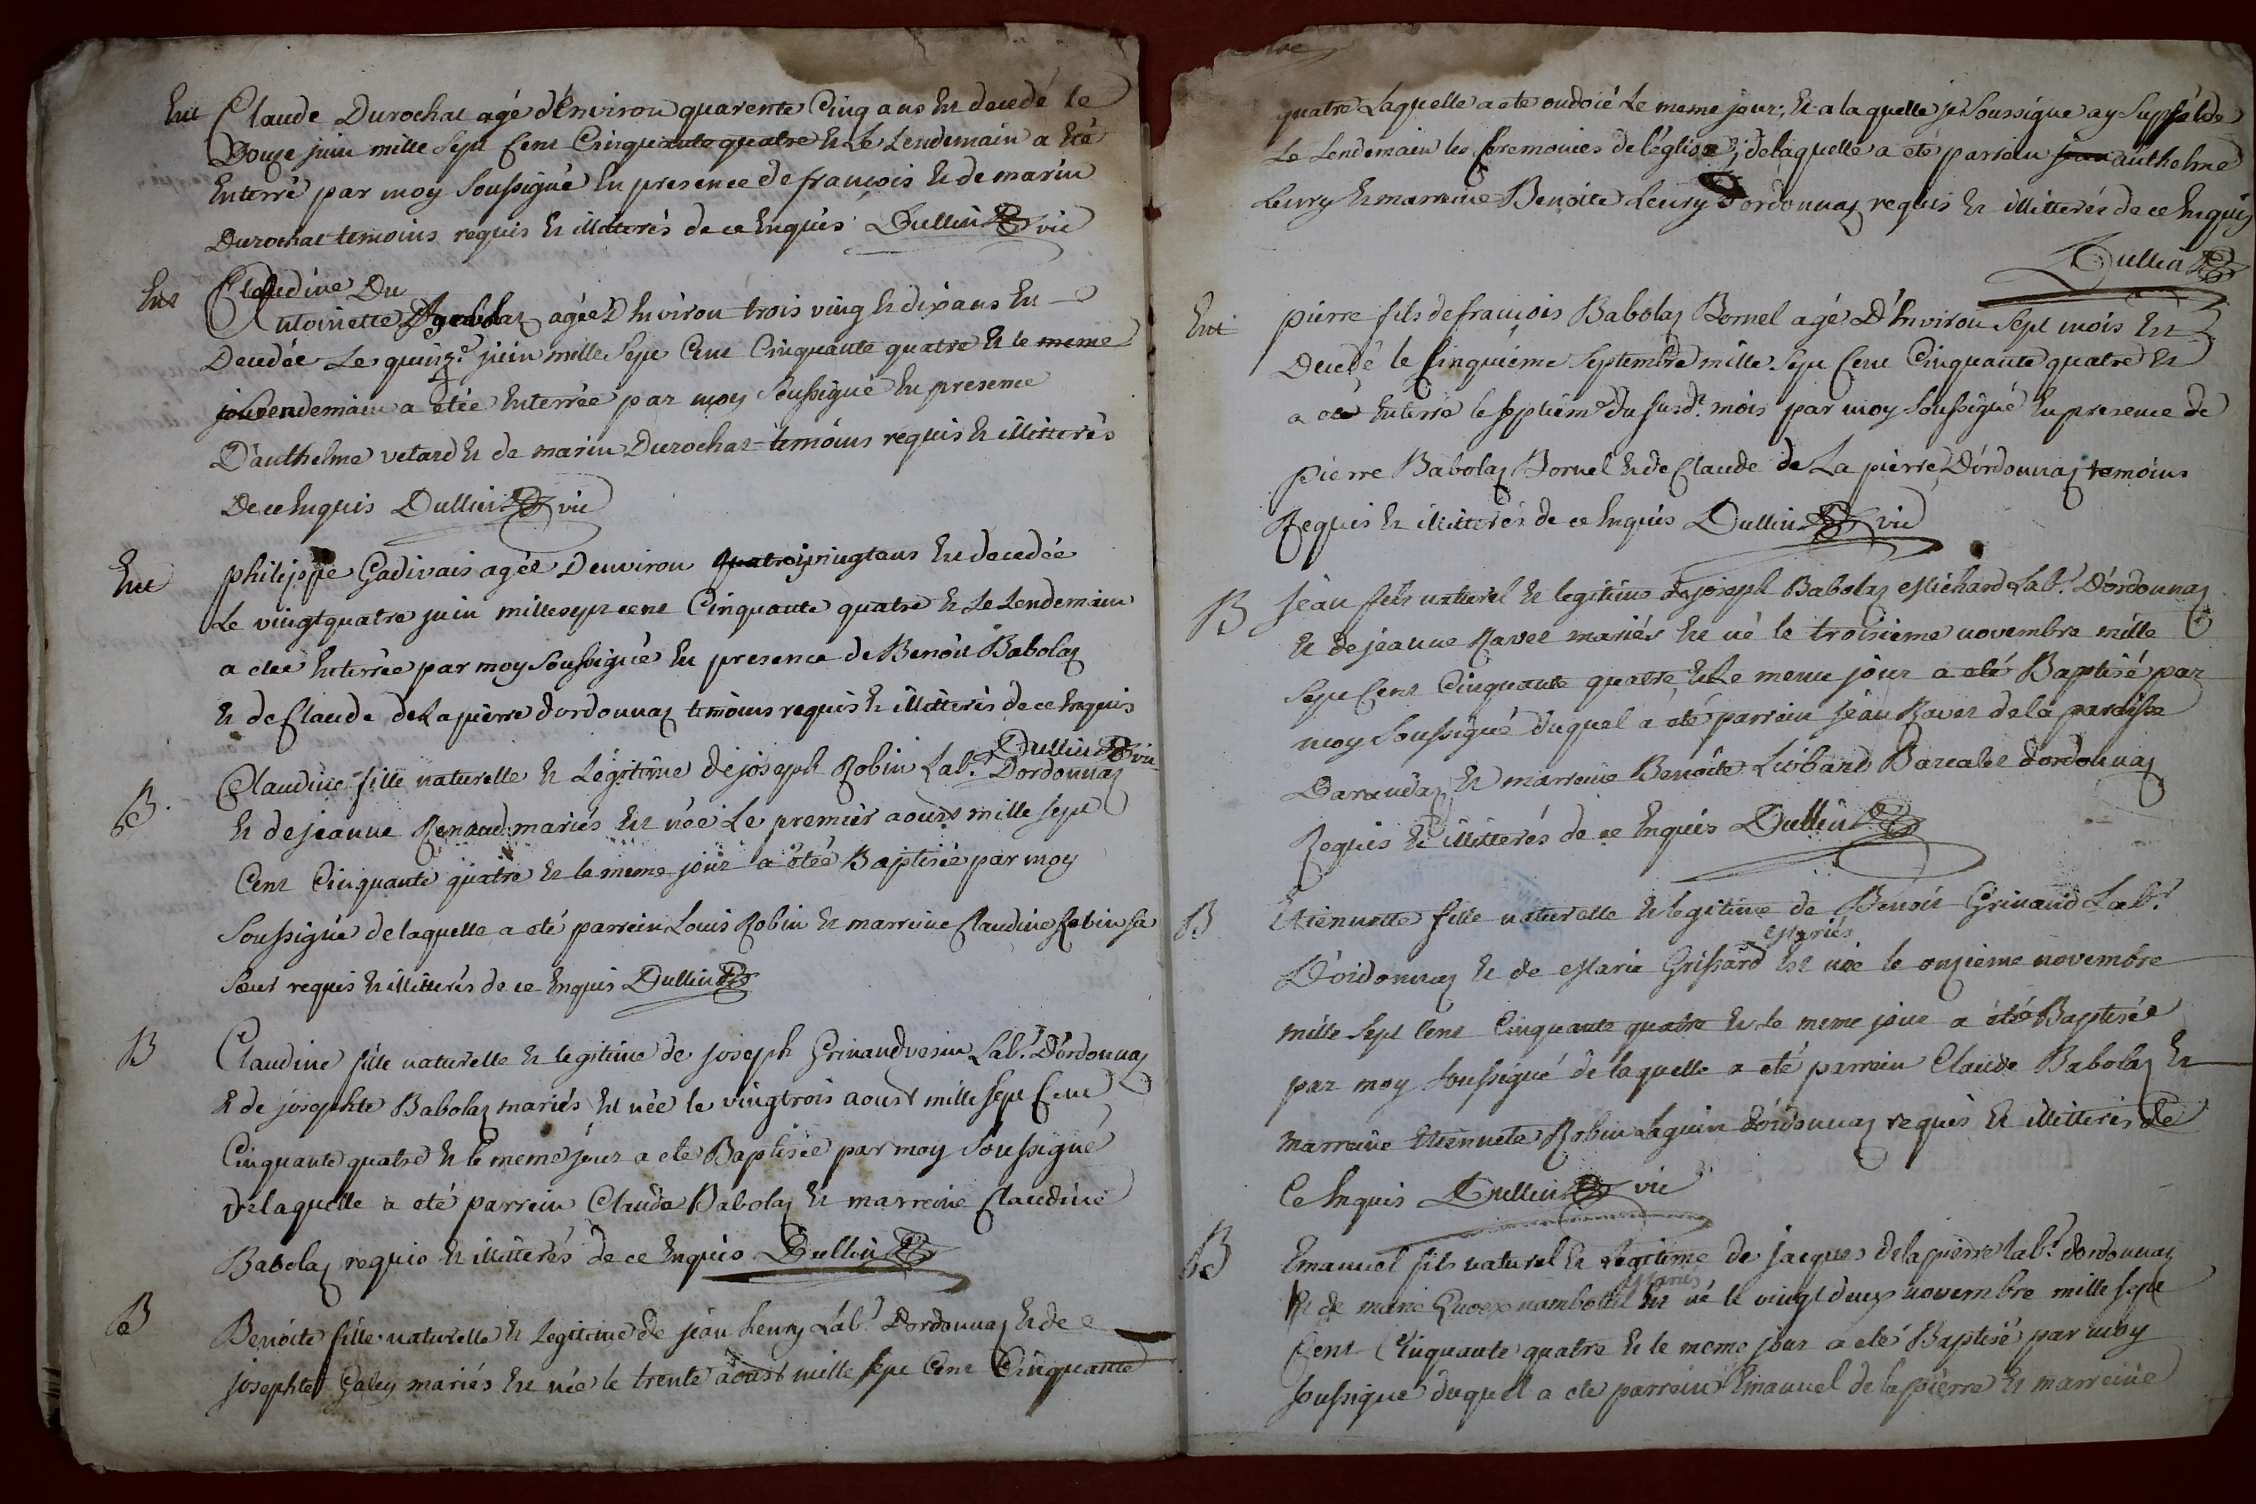 Ent Claude Durochat agé d'Environ quarente Cinq ans Est decedé le
Douze juin mille Sept Cent Cinquante quatre Et Le Lendemain a Eté
Enterré par moy Soussigné En presence de françois Et de marin
Durochat temoins requis Et illiterés de ce Enquis Dullin vic
Claudine Du
Ent Antoinette agée D'Environ trois ving Et dix ans Est
Decedée Le quinz.e juin mille Sept Cent Cinquante quatre Et le meme
jour Lendemain a Etée Enterrée par moy Soussigné En presence
D'anthelme vetard Et de marin Durochat temoins requis Et illitterés
De ce Enquis Dullin vic
Ent philippe Gadivais agée D'environ quatre vingt ans Est decedée
Le vingt quatre juin mille sept cent Cinquante quatre Et Le Lendemain
a etée Enterrée par moy Soussigné En presence de Benoit Babolaz
Et de Claude de La pierre d'ordonnaz temoins requis Et illitterés de ce Enquis
Dullin vic
B. Claudine fille naturelle Et Legitime de joseph Robin Lab.r D'ordonnaz
Et de jeanne Renaud mariés Est née Le premier aoust mille sept
Cent Cinquante quatre Et le meme jour a étée Baptisée par moy
Soussigné de laquelle a eté parrein Louis Robin Et marreine Claudine Robin sa
Sœur requis Et illitterés de ce Enquis Dullin
B Claudine fille naturelle Et legitime de joseph Grinand vesin Lab.r D'ordonnaz
Et de josephte Babolaz mariés Est née le vingtrois aoust mille sept Cent
Cinquante quatre Et le meme jour a eté Baptisée par moy Soussigné
De laquelle a eté parrein Claude Babolaz Et marreine Claudine
Babolaz requis Et illitterés de ce Enquis Dullin
B Benoite fille naturelle Et Legitime de jean Leury Lab.r D'ordonnaz Et de
josephte Galey mariés Est née le trente aoust mille sept Cent Cinquante
quatre Laquelle a eté ondoié Le meme jour, Et a laquelle je Soussigné ay Suppléé
Le Lendemain les Ceremonies de l'église; de laquelle a été parrein anthelme
Leury Et marreine Benoite Leury D'ordonnaz requis Et illitterés de ce Enquis
Dullin
Ent pierre fils de françois Babolaz Bornel agé D'Environ Sept mois Est
Decedé le Cinquiéme Septembre mille Sept Cent Cinquante quatre Et
a eté Enterré le septiém.e du susd.t mois par moy Soussigné En presence de
pierre Babolaz Bornel Et de Claude de La pierre D'ordonnaz temoins
Requis Et illitterés de ce Enquis Dullin vic
B jean fils naturel Et legitime de joseph Babolaz Michard Lab.r D'ordonnaz
Et de jeanne Ravet mariés Est né le troisieme novembre mille
Sept Cent Cinquante quatre, Et Le meme jour a eté Baptisé par
moy Soussigné duquel a été parrein jean Ravet de la paroisse
Et marreine Benoite D'ordonnaz
Requis Et illitterés de ce Enquis Dullin
B Etiennette fille naturelle Et legitime de Benoit Grinand Lab.r
Mariés
D'ordonnaz Et de Marie Grissard Est née le onzieme novembre
mille Sept Cent Cinquante quatre Et Le meme jour a été Baptisée
par moy Soussigné de laquelle a eté parrein Claude Babolaz Et
marreine Etiennete Robin D'ordonnaz requis Et illitterés de
Ce Enquis Dullin vic
B Emanuel fils naturel Et Legitime de jacques de la pierre lab.r d'ordonnaz
Mariés
Et de marie Est né le vingt deux novembre mille sept
Cent Cinquante quatre Et le meme jour a eté Baptisé par moy
Soussigné duquel a eté parrein Emanuel de la pierre Et marreine